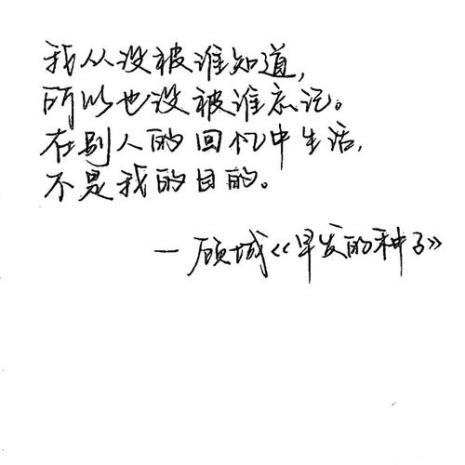 我从没被谁知道，
所以也没被谁忘记。
在别人的回忆中生活，
不是我的目的。
—顾城《早发的种子》